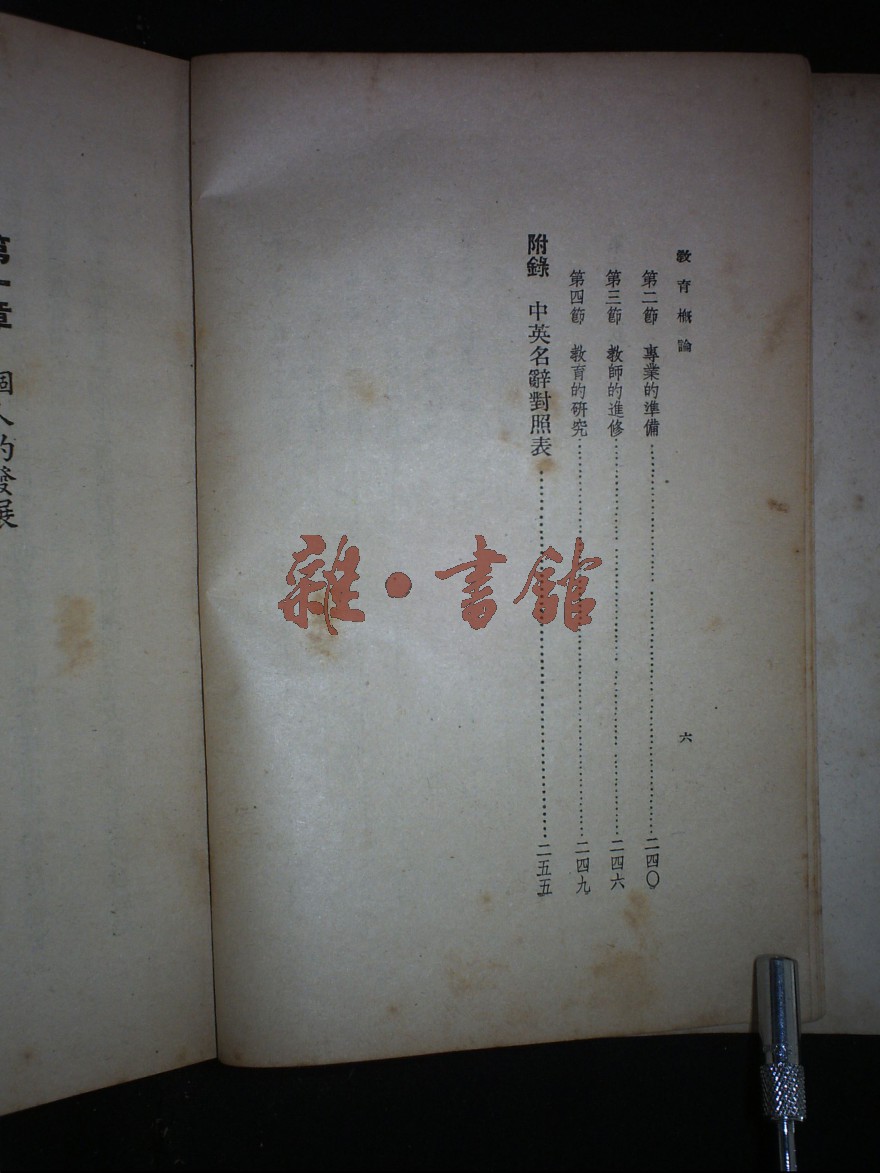 教育概論
六
第二節　專業的準備……二四〇
第三節　教師的進修……二四六
第四節　教育的研究……二四九
附錄　中英名辭對照表……二五五
第一章　個人的發展
雜·書館